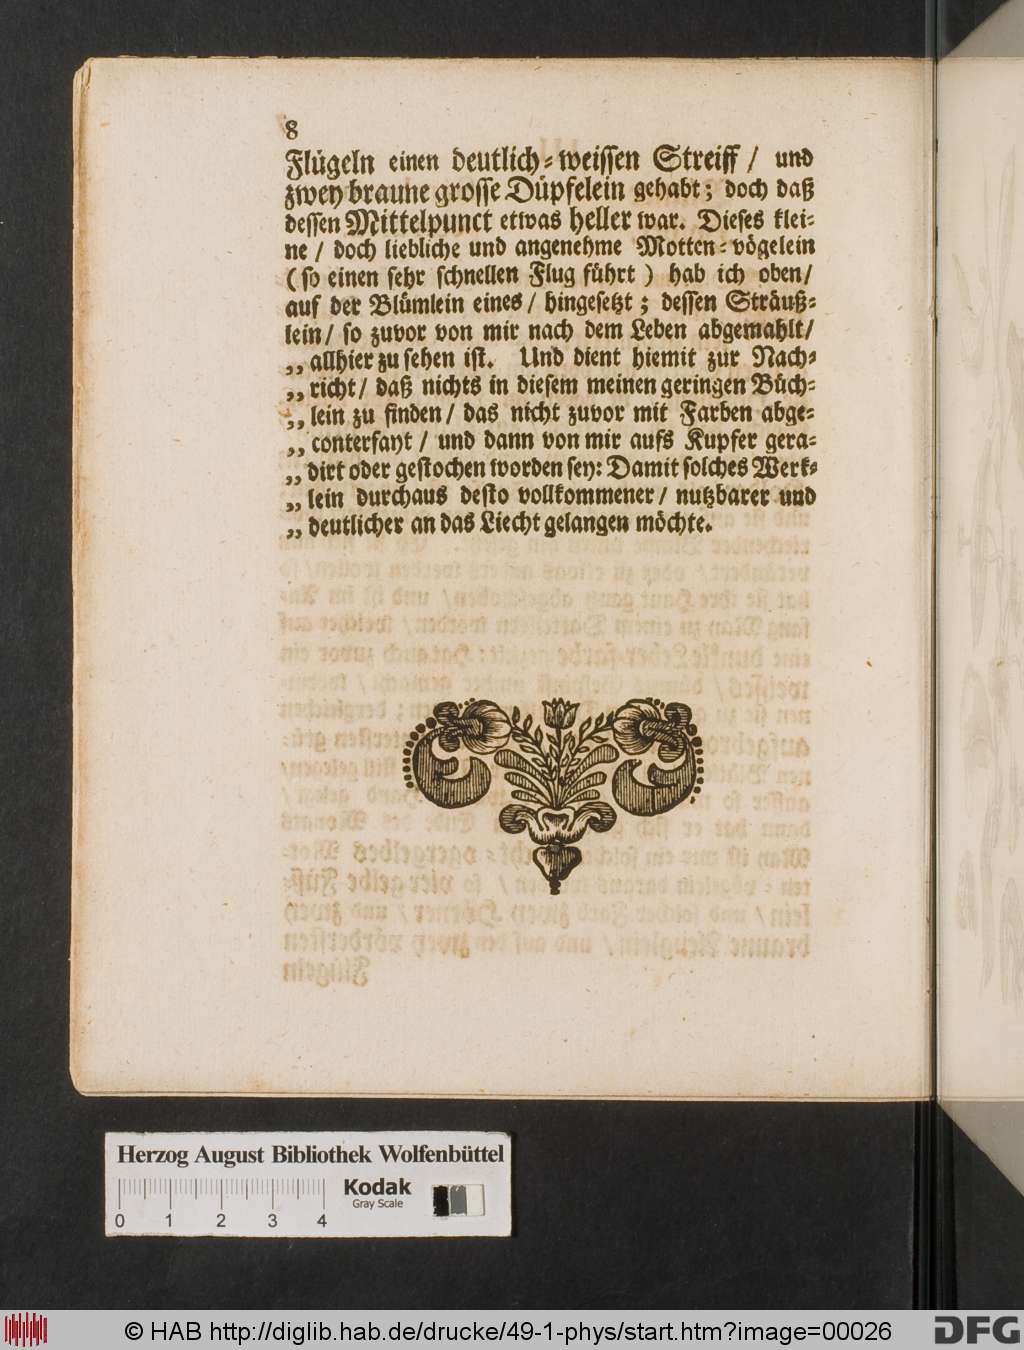 8
Flügeln einen deutlich-weissen Streiff / und
zwey braune grosse Düpfelein gehabt; doch daß
dessen Mittelpunct etwas heller war. Dieses klei-
ne / doch liebliche und angenehme Motten-vögelein
(so einen sehr schnellen Flug führt) hab ich oben/
auf der Blümlein eines / hingesetzt; dessen Sträuß-
lein/ so zuvor von mir nach dem Leben abgemahlt/
„allhier zu sehen ist. Und dient hiemit zur Nach-
„richt/ daß nichts in diesem meinen geringen Büch-
„lein zu finden/ das nicht zuvor mit Farben abge-
„conterfayt / und dann von mir aufs Kupfer gera-
„dirt oder gestochen worden sey: Damit solches Werk-
„lein durchaus desto vollkommener/ nutzbarer und
„deutlicher an das Liecht gelangen möchte.
Herzog August Bibliothek Wolfenbüttel
Kodak
Gray Scale
0 1 2 3 4
© HAB http://diglib.hab.de/drucke/49-1-phys/start.htm?image=00026
DFG